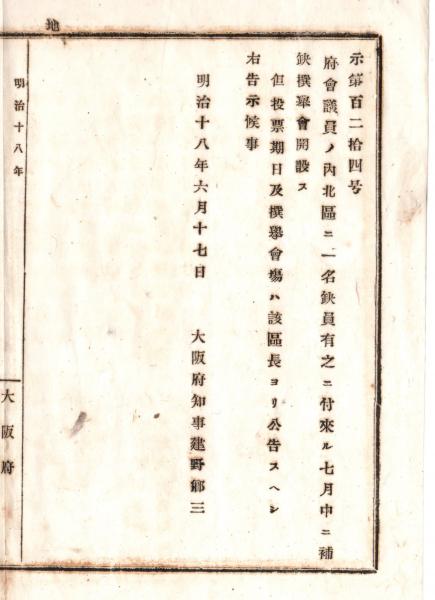 地
示第百二拾四号
府會議員ノ內北區ニ一名缺員有之ニ付來ル七月中ニ補
缺撰擧會開設ス
但投票期日及撰擧會塲ハ該區長ヨリ公告スヘシ
右告示候事
明治十八年六月十七日 大阪府知事建野鄕三
明治十八年
大阪府